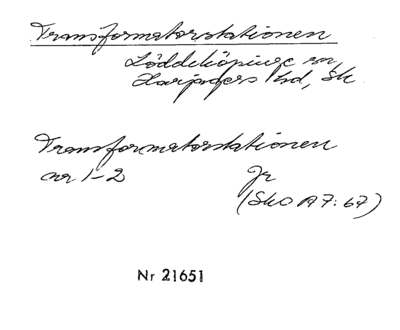 Transformatorstationen
Löddeköpinge sn
Harjagers hd, Sk
Transformatorstationen
nr 1-2 Jr
(SkO A7:67)
Nr 21651